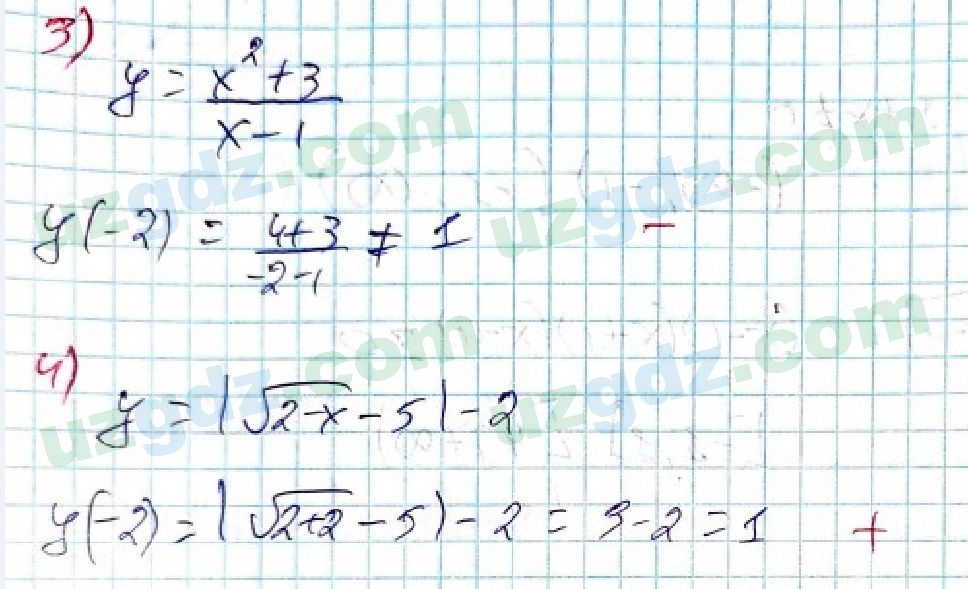 3)
y = x²+3 / x-1
y(-2) = 4+3 / -2-1 ≠ 1 -
4)
y = |√2-x - 5| - 2
y(-2) = |√2+2 - 5| - 2 = 3 - 2 = 1 +
uzgdz.com
uzgdz.com
uzgdz.com
uzgdz.com